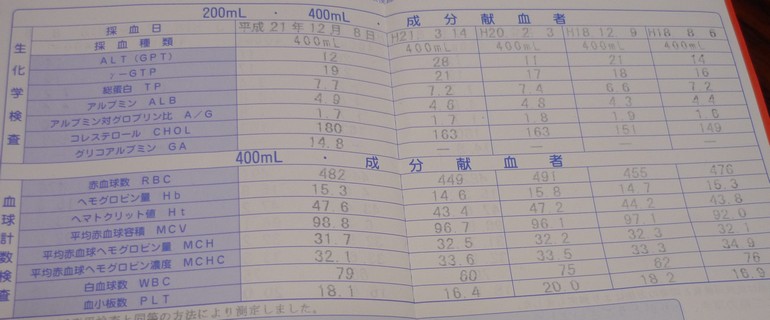 200mL ・ 400mL ・ 成 分 献 血 者
生化学検査
採血日 平成21年12月 8日 H21. 3 14 H20 2. 3 H18 12. 9 H18 8 6
採血種類 400mL 400mL 400mL 400mL 400mL
ALT (GPT) 12 28 11 21 14
γ−GTP 19 21 17 18 16
総蛋白 TP 7.7 7.2 7.4 6.6 7.2
アルブミン ALB 4.9 4.6 4.8 4.3 4.4
アルブミン対グロブリン比 A/G 1.7 1.7 1.8 1.9 1.6
コレステロール CHOL 180 163 163 151 149
グリコアルブミン GA 14.8 — — — —
400mL ・ 成 分 献 血 者
血球計数検査
赤血球数 RBC 482 449 491 455 476
ヘモグロビン量 Hb 15.3 14.6 15.8 14.7 15.3
ヘマトクリット値 Ht 47.6 43.4 47.2 44.2 43.8
平均赤血球容積 MCV 98.8 96.7 96.1 97.1 92.0
平均赤血球ヘモグロビン量 MCH 31.7 32.5 32.2 32.3 32.1
平均赤血球ヘモグロビン濃度 MCHC 32.1 33.6 33.5 33.3 34.9
白血球数 WBC 79 60 75 62 76
血小板数 PLT 18.1 16.4 20.0 18.2 18.9
と同等の方法により測定しました。